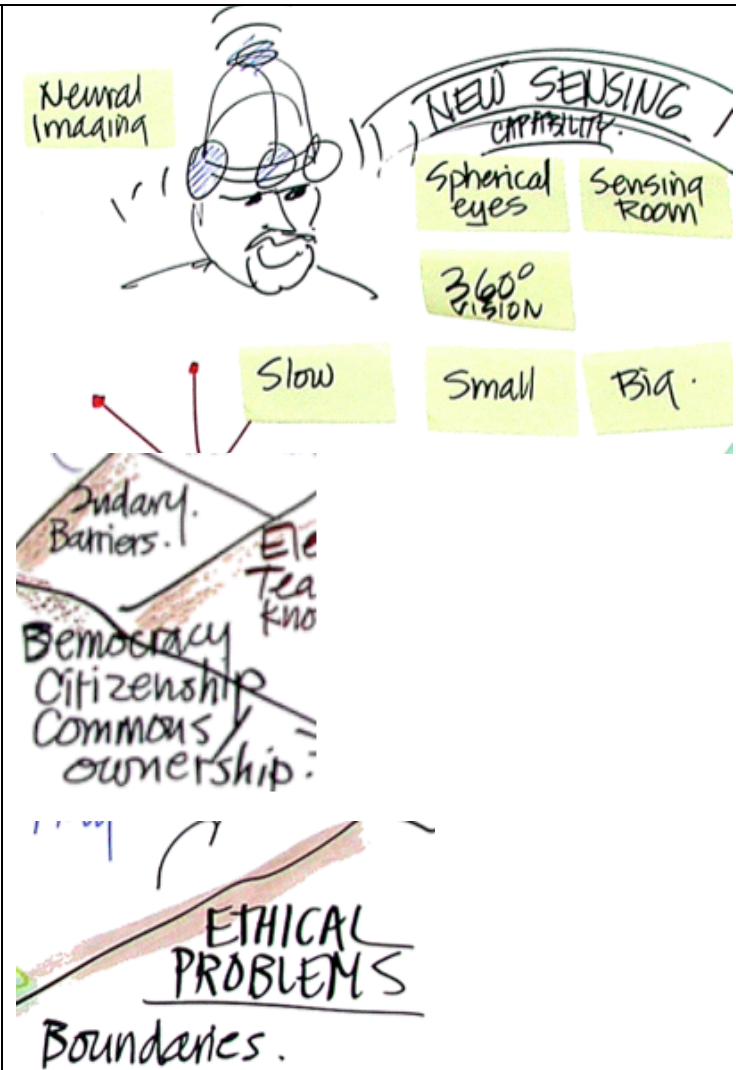 Neural
Imaging
NEW SENSING
CAPABILITY.
Spherical
eyes
Sensing
Room
360°
VISION
Slow
Small
Big.
2ndary.
Barriers.
Ele
Tea
Kno
Democracy
Citizenship
Commons
ownership
ETHICAL
PROBLEMS
Boundaries.